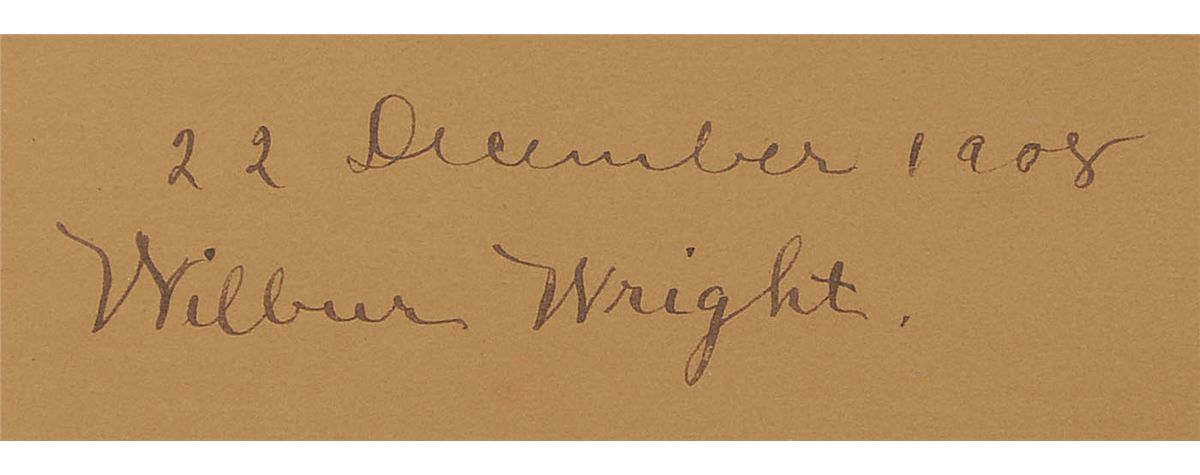 22 December 1908
Wilbur Wright.